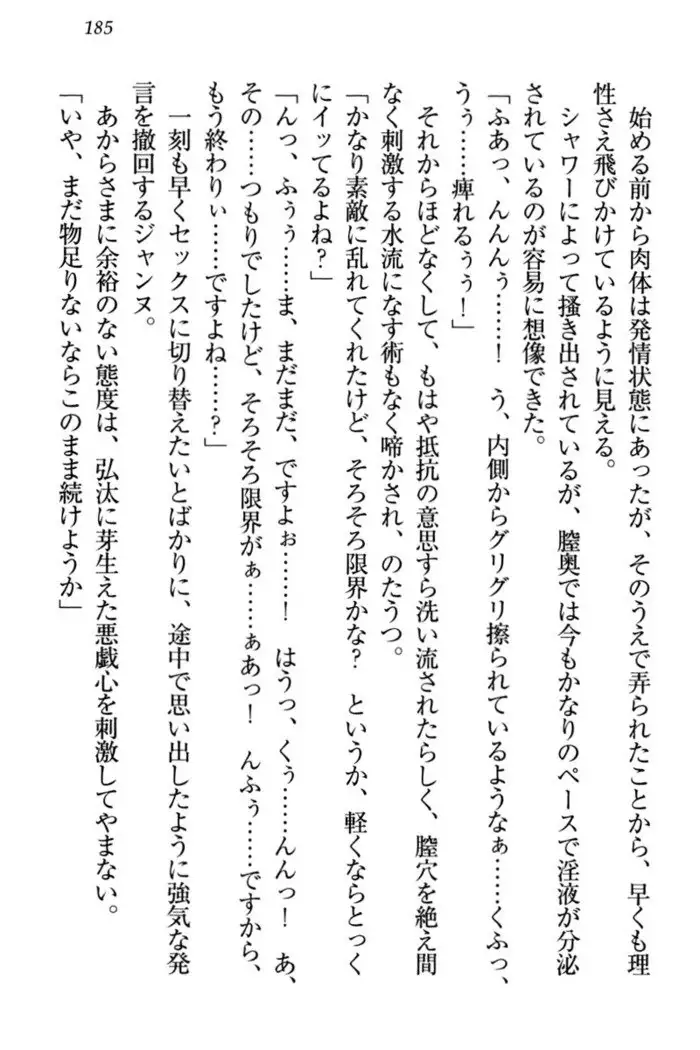 185
始める前から肉体は発情状態にあったが、そのうえで弄られたことから、早くも理
性さえ飛びかけているように見える。
シャワーによって掻き出されているが、膣奥では今もかなりのペースで淫液が分泌
されているのが容易に想像できた。
「ふあっ、んんんぅ……！　う、内側からグリグリ擦られているようなぁ……くふっ、
うぅ……痺れるぅぅ！」
それからほどなくして、もはや抵抗の意思すら洗い流されたらしく、膣穴を絶え間
なく刺激する水流になす術もなく啼かされ、のたうつ。
「かなり素敵に乱れてくれたけど、そろそろ限界かな？　というか、軽くならとっく
にイッてるよね？」
「んっ、ふぅぅ……ま、まだまだ、ですよぉ……！　はうっ、くぅ……んんっ！　あ、
その……つもりでしたけど、そろそろ限界がぁ……ぁあっ！　んふぅ……ですから、
もう終わりぃ……ですよね……？」
一刻も早くセックスに切り替えたいとばかりに、途中で思い出したように強気な発
言を撤回するジャンヌ。
あからさまに余裕のない態度は、弘汰に芽生えた悪戯心を刺激してやまない。
「いや、まだ物足りないならこのまま続けようか」